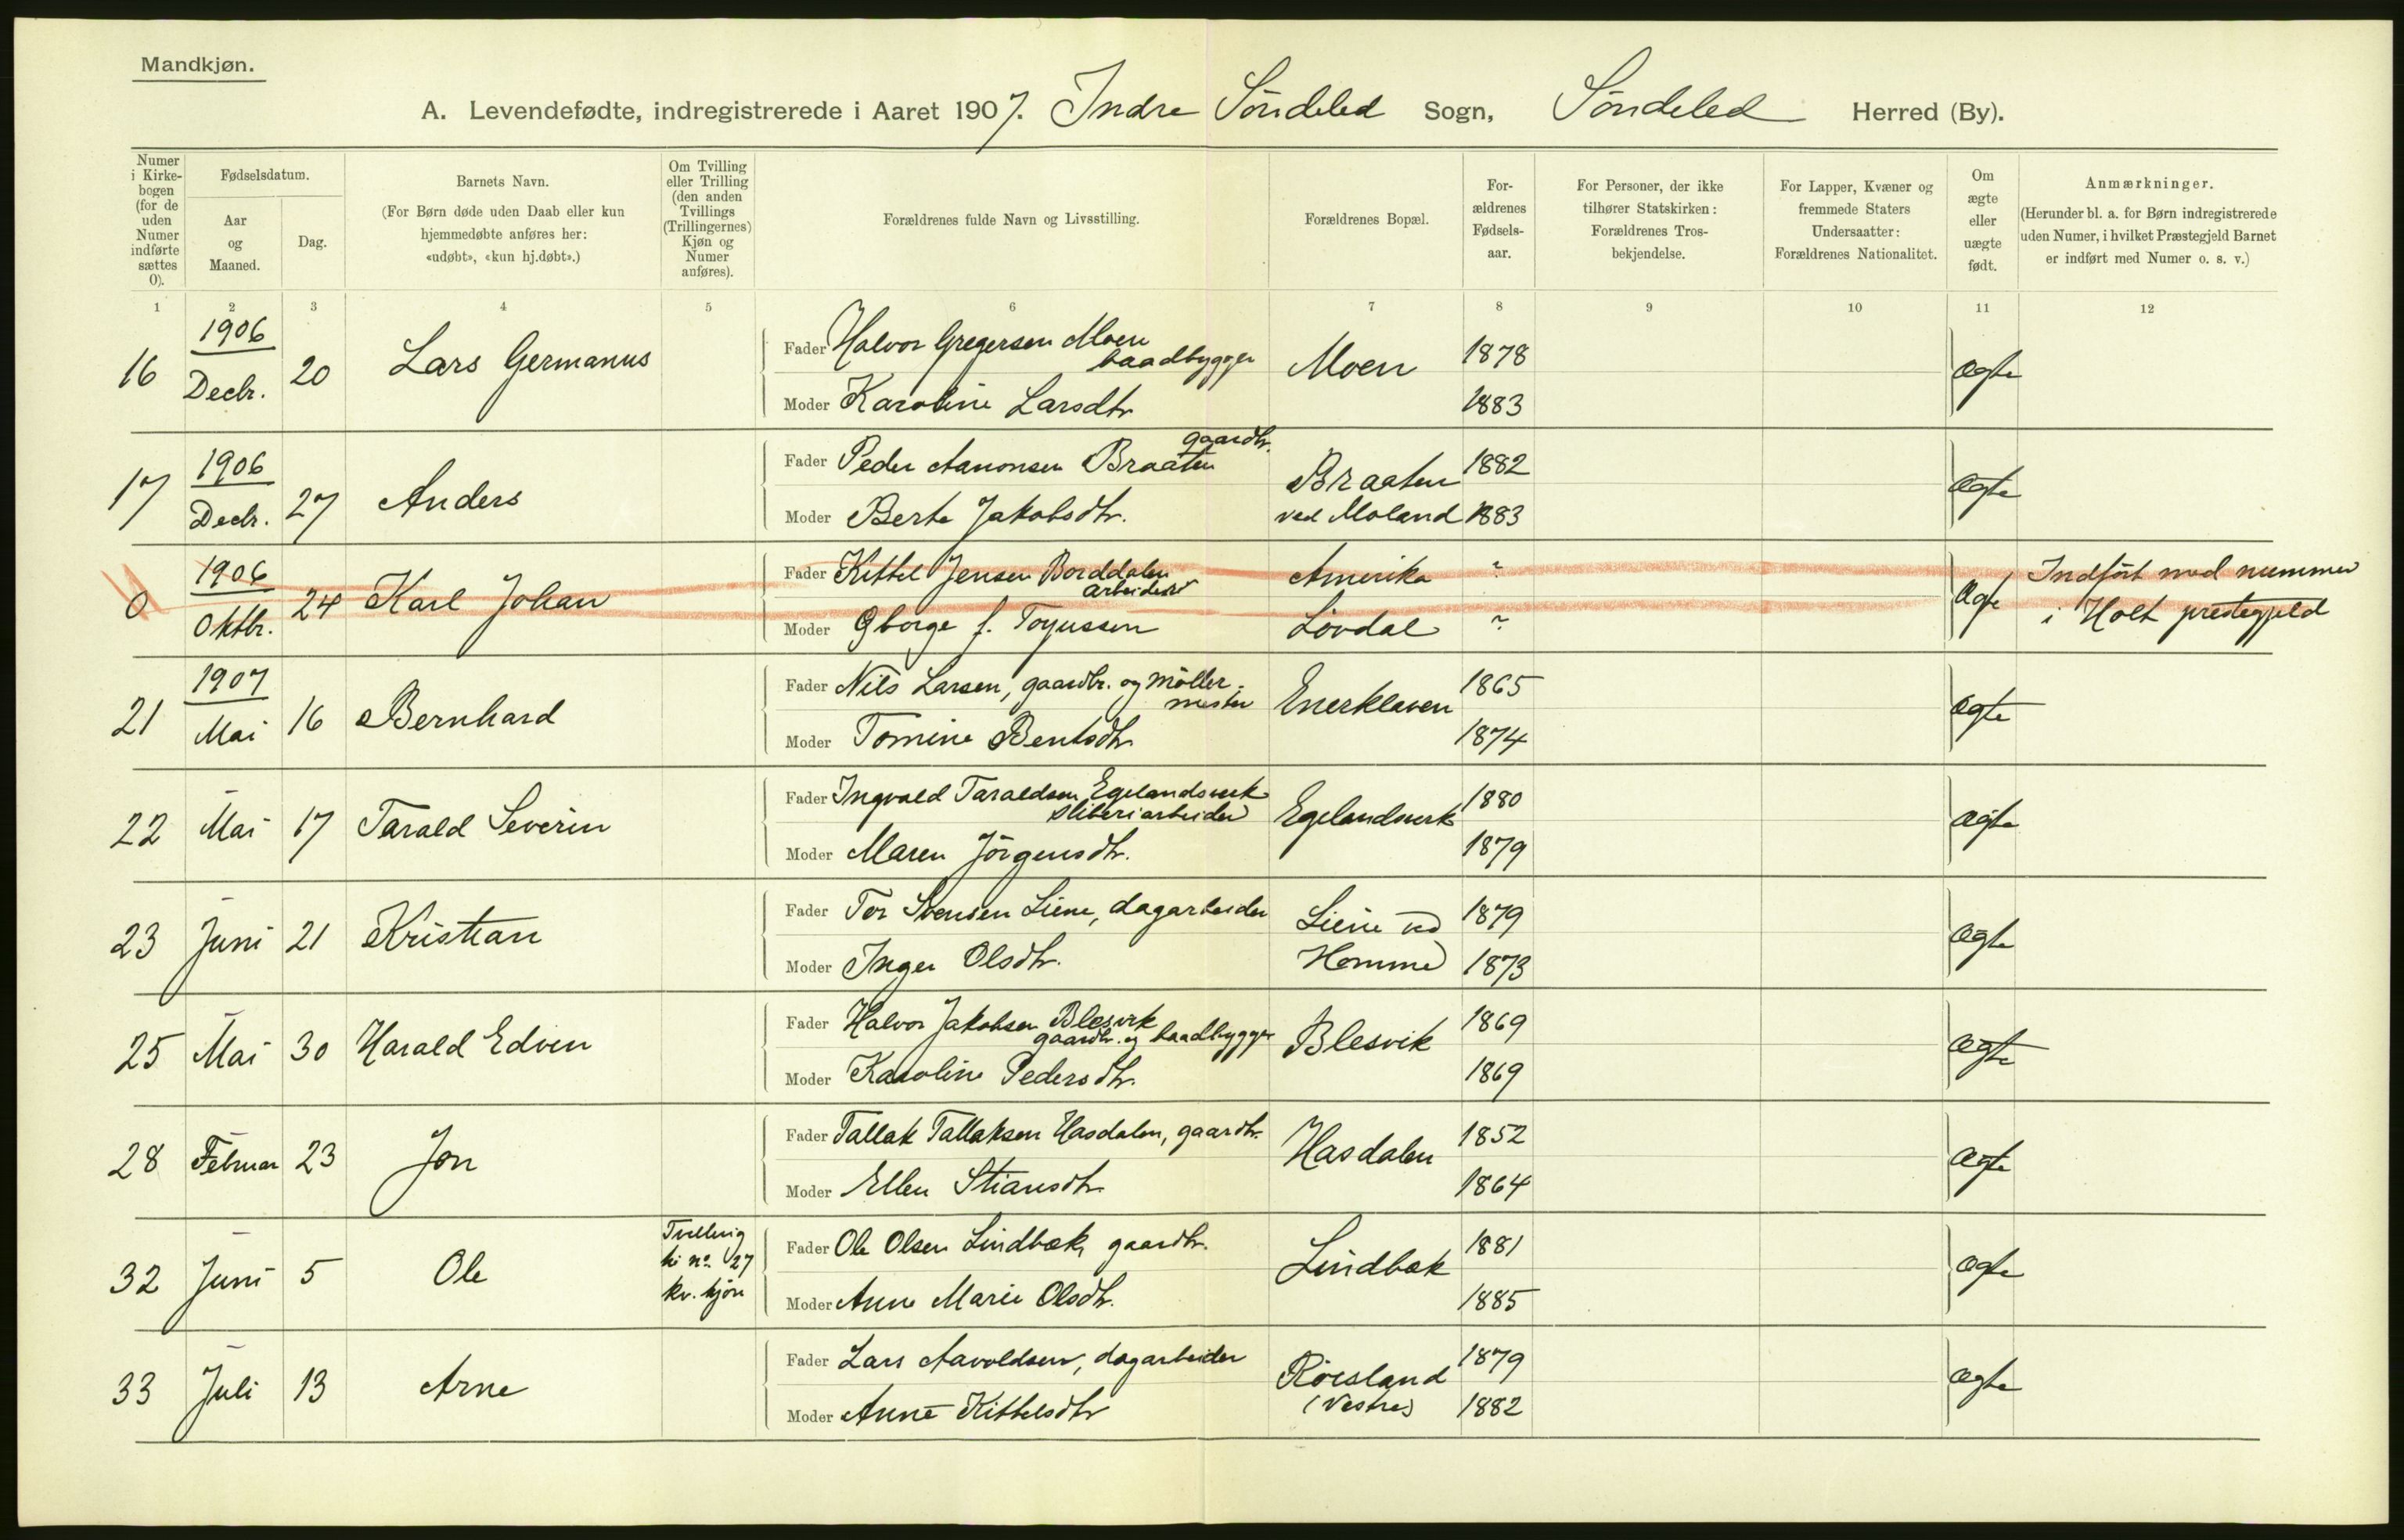 Mandkjøn.
A. Levendefødte, indregistrerede i Aaret 1907. Indre Söndeled Sogn, Söndeled Herred (By).
Numer i Kirke-bogen (for de uden Numer indførte sættes 0).
Fødselsdatum.
Aar og Maaned.
Dag.
Barnets Navn.
(For Børn døde uden Daab eller kun hjemmedøbte anføres her: «udøbt», «kun hj.døbt».)
Om Tvilling eller Trilling (den anden Tvillings (Trillingernes) Kjøn og Numer anføres).
Forældrenes fulde Navn og Livsstilling.
Forældrenes Bopæl.
For-ældrenes Fødsels-aar.
For Personer, der ikke tilhører Statskirken: Forældrenes Tros-bekjendelse.
For Lapper, Kvæner og fremmede Staters Undersaatter: Forældrenes Nationalitet.
Om ægte eller uægte født.
Anmærkninger.
(Herunder bl. a. for Børn indregistrerede uden Numer, i hvilket Præstegjeld Barnet er indført med Numer o. s. v.)
1 2 3 4 5 6 7 8 9 10 11 12
16 1906 Decbr. 20 Lars Germanus
Fader Halvor Gregersen Moen baadbygger Moen 1878 ægte
Moder Karoline Larsdtr 1883
17 1906 Decbr. 27 Anders
Fader Peder Aanonsen Braaten gaardbr. Braaten 1882 ægte
Moder Berte Jakobsdtr. ved Moland 1883
0 1906 Oktbr. 24 Karl Johan
Fader Kittel Jensen Borddalen arbeider Amerika ? ægte Indført med nummer
Moder f. Lövdal ? i Holt prestegjeld
21 1907 Mai 16 Bernhard
Fader Nils Larsen, gaardbr. og möller-mester Enerklaven 1865 ægte
Moder Tomine Bentsdtr 1874
22 Mai 17 Tarald Severin
Fader Ingvald Taraldsen Egelandsverk sliberiarbeider Egelandsverk 1880 ægte
Moder Maren Jörgensdtr. 1879
23 Juni 21 Kristian
Fader Tor Svensen Liene, dagarbeider Liene ved 1879 ægte
Moder Inger Olsdtr. Homme 1873
25 Mai 30 Harald Edvin
Fader Halvor Jakobsen Blesvik gaardbr. og baadbygger Blesvik 1869 ægte
Moder Karoline Pedersdtr. 1869
28 Februar 23 Jon
Fader Tallak Tallaksen Hasdalen, gaardbr. Hasdalen 1852 ægte
Moder Ellen Stiansdtr. 1864
32 Juni 5 Ole Tvilling til no. 27 kv. kjön
Fader Ole Olsen Lindbæk, gaardbr. Lindbæk 1881 ægte
Moder Anne Marie Olsdtr. 1885
33 Juli 13 Arne
Fader Lars Aavoldsen, dagarbeider Röisland 1879 ægte
Moder Anne Kittelsdtr (Vestre) 1882